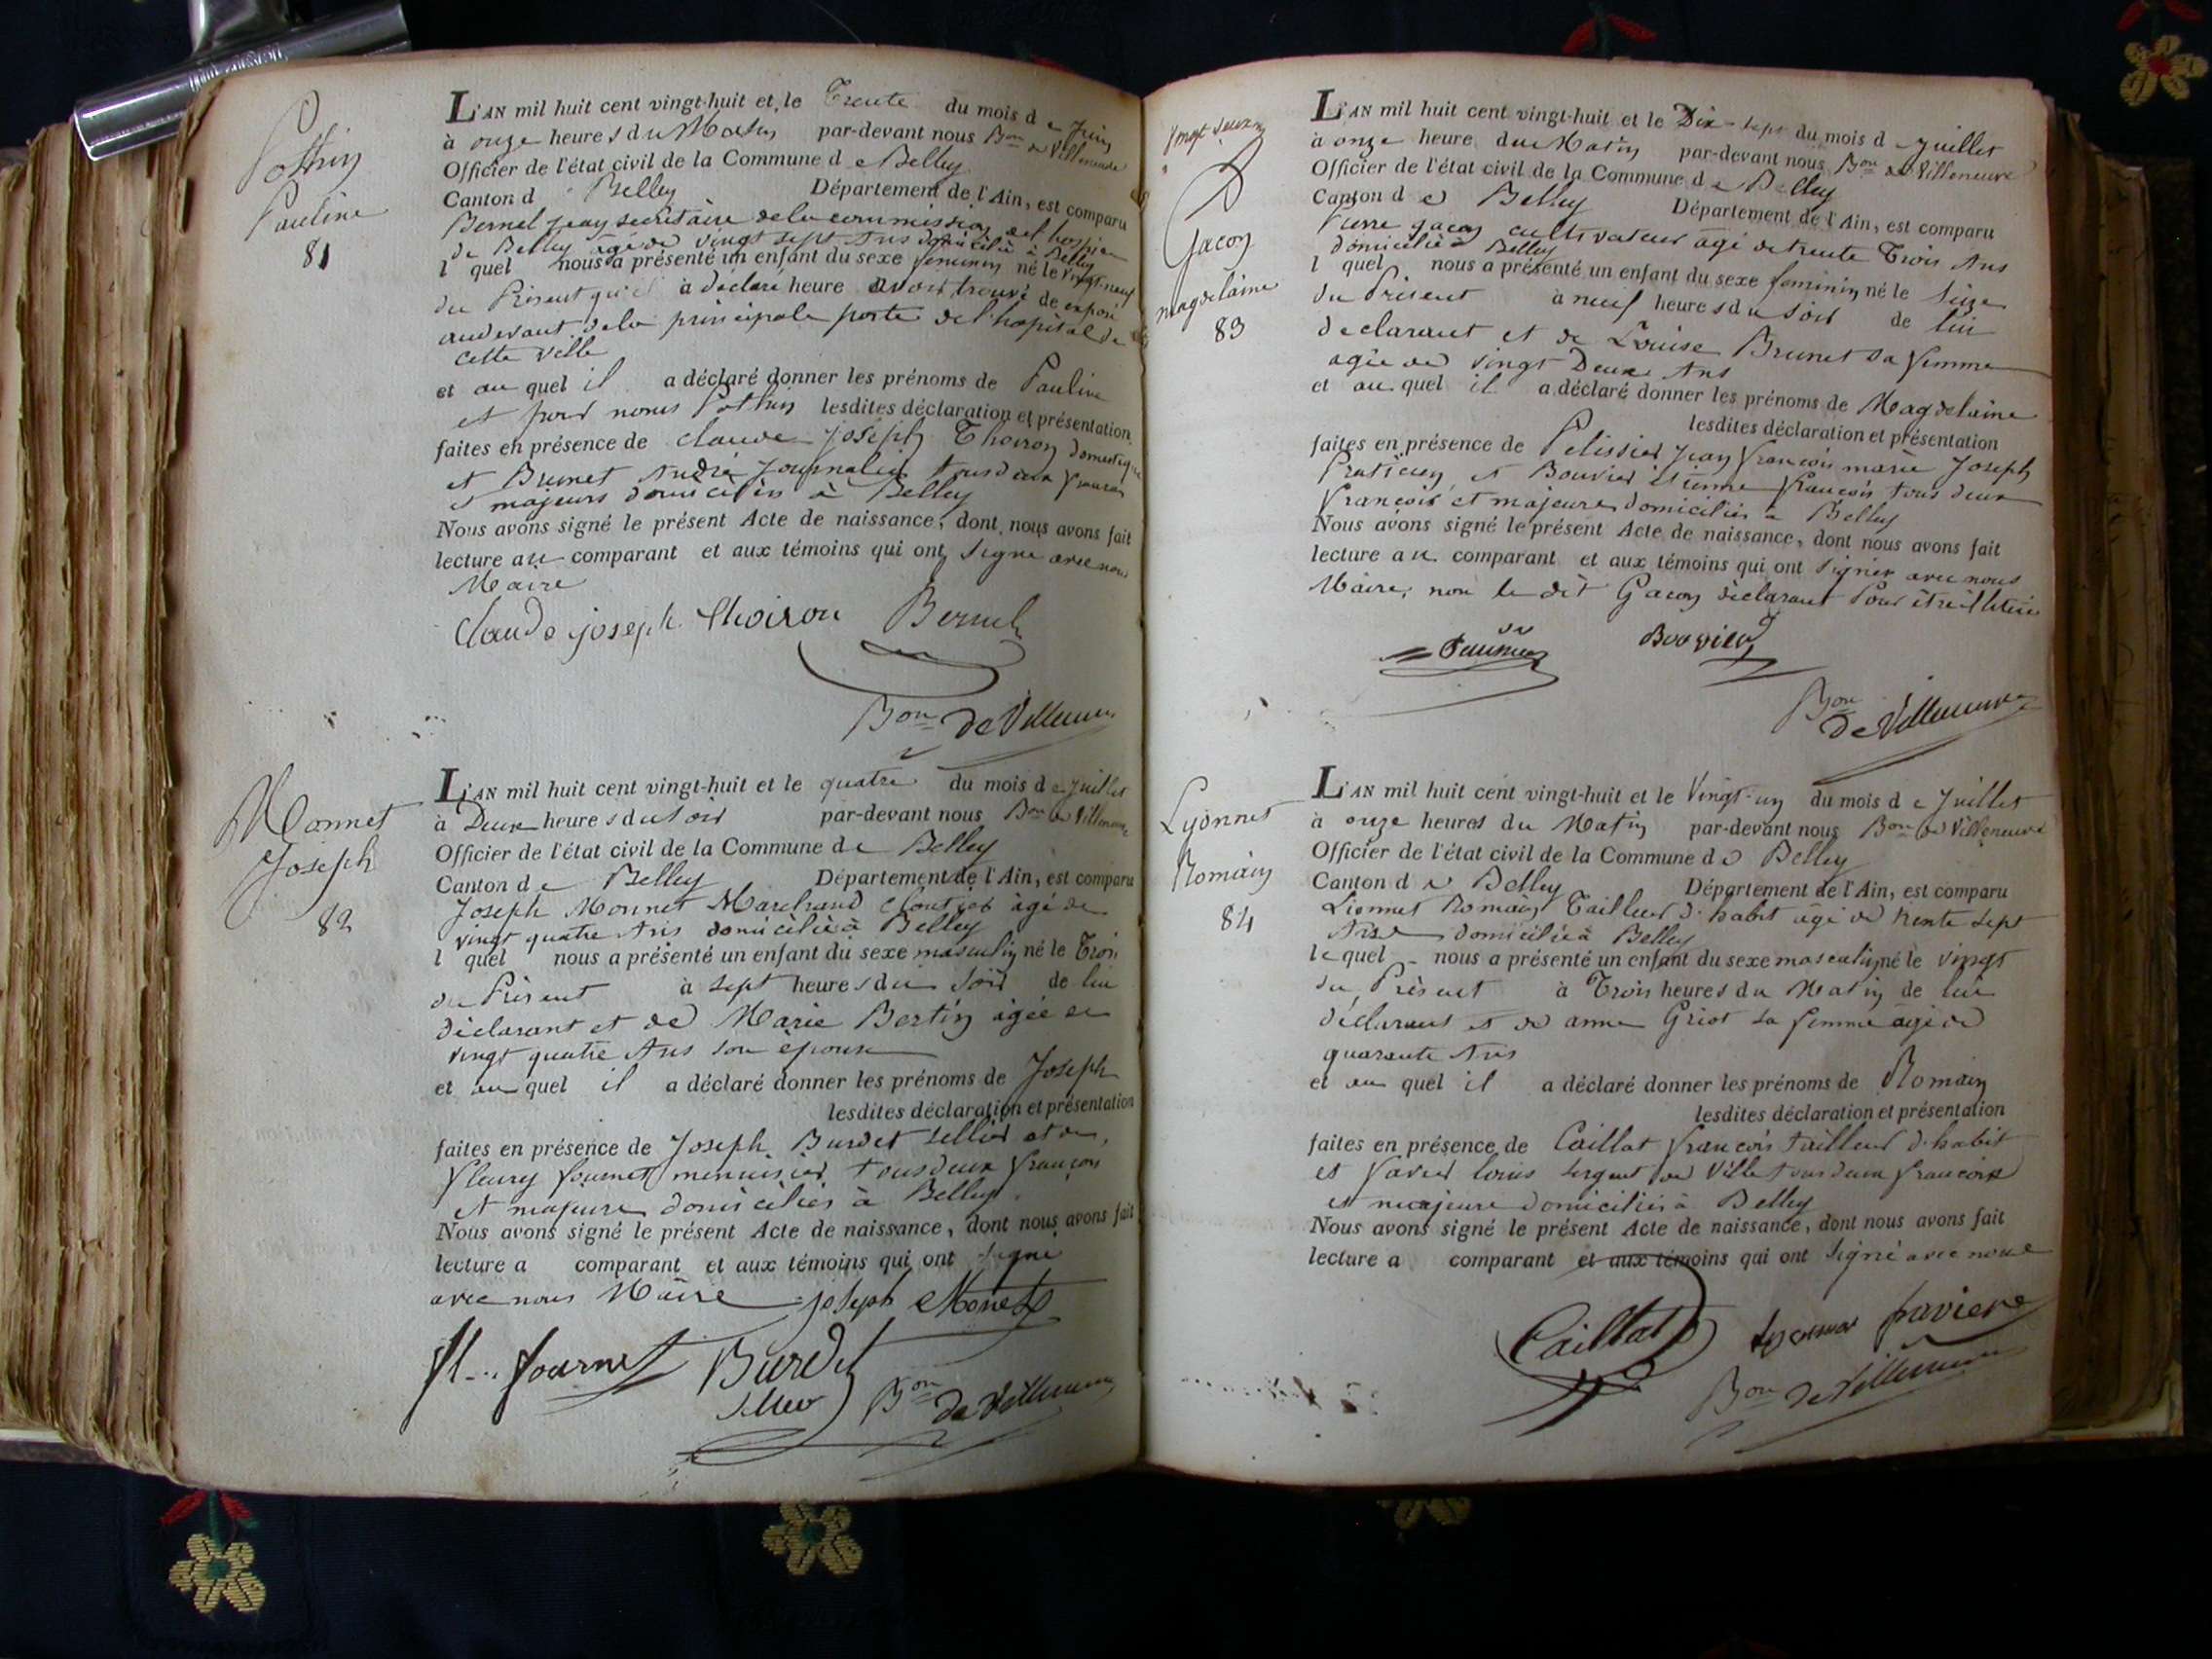 Pothin
Pauline
81
L'AN mil huit cent vingt-huit et le Trente du mois de Juin
à onze heures du Matin par-devant nous Bon de Villeneuve
Officier de l'état civil de la Commune de Belley
Canton d Belley Département de l'Ain, est comparu
Bernel Jean secrétaire de la commission del hospice
de Belley agé de vingt sept Ans domicilié à Belley
l quel nous a présenté un enfant du sexe feminin né le vingt-neuf
du Présent qu'il à déclaré heure avoir trouvé de exposé
audevant dela principale porte de l'hopital de
cette ville
et au quel il a déclaré donner les prénoms de Pauline
et pour noms Pothin lesdites déclaration et présentation
faites en présence de claude joseph Thoiron domestique
et Brunet André Journalier tous deux francois
et majeurs domiciliés à Belley
Nous avons signé le présent Acte de naissance, dont nous avons fait
lecture au comparant et aux témoins qui ont signé avec nous
Maire
Claude joseph thoiron Bernel
Bon de Villeneuve
Monnet
Joseph
82
L'AN mil huit cent vingt-huit et le quatre du mois de Juillet
à Deux heures du soir par-devant nous Bon de Villeneuve
Officier de l'état civil de la Commune de Belley
Canton de Belley Département de l'Ain, est comparu
Joseph Monnet Marchand Cloutier agé de
vingt quatre Ans domicilié à Belley
l quel nous a présenté un enfant du sexe masculin né le Trois
du Présent à sept heures du soir de lui
déclarant et de Marie Bertin agée de
vingt quatre Ans son epouse
et au quel il a déclaré donner les prénoms de Joseph
lesdites déclaration et présentation
faites en présence de Joseph Burdet sellier et de
fleury fournet menuisier tous deux francois
et majeurs domiciliés à Belley
Nous avons signé le présent Acte de naissance, dont nous avons fait
lecture a comparant et aux témoins qui ont signé
avec nous Maire joseph Monet
fl.. fournet Burdet
Bon de Villeneuve
vingt deux
Gacon
magdelaine
83
L'AN mil huit cent vingt-huit et le Dix-sept du mois d juillet
à onze heure du Matin par-devant nous Bon de Villeneuve
Officier de l'état civil de la Commune de Belley
Canton de Belley Département de l'Ain, est comparu
Pierre gacon cultivateur agé de trente Trois Ans
domicilié à Belley
l quel nous a présenté un enfant du sexe feminin né le seize
du Présent à neuf heures du soir de lui
declarant et de Louise Brunet sa femme
agée de vingt Deux Ans
et au quel il a déclaré donner les prénoms de Magdelaine
lesdites déclaration et présentation
faites en présence de Pelissier Jean francois marie Joseph
Praticien et Bouvier Etienne francois tous deux
francois et majeurs domiciliés à Belley
Nous avons signé le présent Acte de naissance, dont nous avons fait
lecture au comparant et aux témoins qui ont signer avec nous
Maire, non le dit Gacon déclarant Pour être illiteré
Bouvier
Bon de Villeneuve
Lyonnet
Romain
84
L'AN mil huit cent vingt-huit et le Vingt-un du mois de Juillet
à onze heures du Matin par-devant nous Bon de Villeneuve
Officier de l'état civil de la Commune de Belley
Canton de Belley Département de l'Ain, est comparu
Lionnet Romain Tailleur d'habit agé de trente sept
Ans domicilié à Belley
le quel nous a présenté un enfant du sexe masculin né le vingt
du Présent à Trois heures du Matin de lui
déclarant et de anne Griot sa femme agé de
quarante Ans
et au quel il a déclaré donner les prénoms de Romain
lesdites déclaration et présentation
faites en présence de Caillat francois tailleur d'habit
et favier louis sergent de Ville tous deux francois
et majeure domiciliés à Belley
Nous avons signé le présent Acte de naissance, dont nous avons fait
lecture a comparant et aux témoins qui ont signé avec nous
Caillat
Bon de Villeneuve